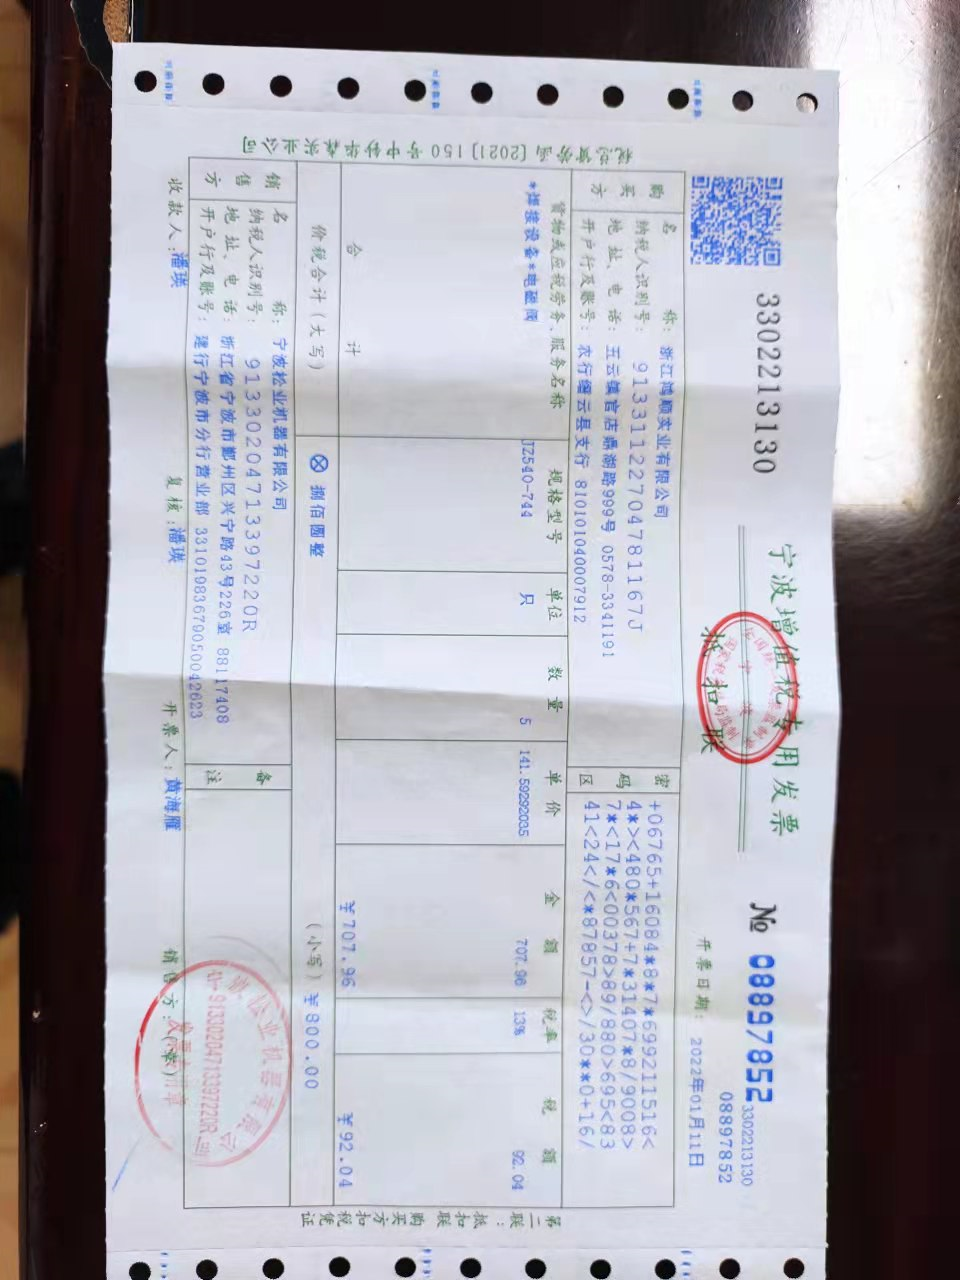 3302213130
宁波增值税专用发票
抵扣联
№ 08897852
3302213130
08897852
开票日期: 2022年01月11日
税总货劳函 [2021] 150 号中钞华森实业公司
购买方
名 称: 浙江鸿顺实业有限公司
纳税人识别号: 91331122704781167J
地 址、电 话: 五云镇官店鼎湖路999号 0578-3341191
开户行及账号: 农行缙云县支行 810101040007912
密码区
+06765+16084*8*7*699211516<
4*><480*567+7*31407*8/9008>
7*<17*6<00378>89/880>695<83
41<24</<*87857-<>/30**0+16/
货物或应税劳务、服务名称 规格型号 单位 数量 单价 金额 税率 税额
*焊接设备*电磁阀 JZ540-744 只 5 141.59292035 707.96 13% 92.04
合 计 ¥707.96 ¥92.04
价税合计(大写) ⊗ 捌佰圆整 (小写) ¥800.00
销售方
名 称: 宁波松业机器有限公司
纳税人识别号: 91330204713397220R
地 址、电 话: 浙江省宁波市鄞州区兴宁路43号226室 88117408
开户行及账号: 建行宁波市分行营业部 33101983679050042623
备注
收款人: 潘瑛 复核: 潘瑛 开票人: 黄海雁 销售方:(章)
91330204713397220R
第二联:抵扣联 购买方扣税凭证